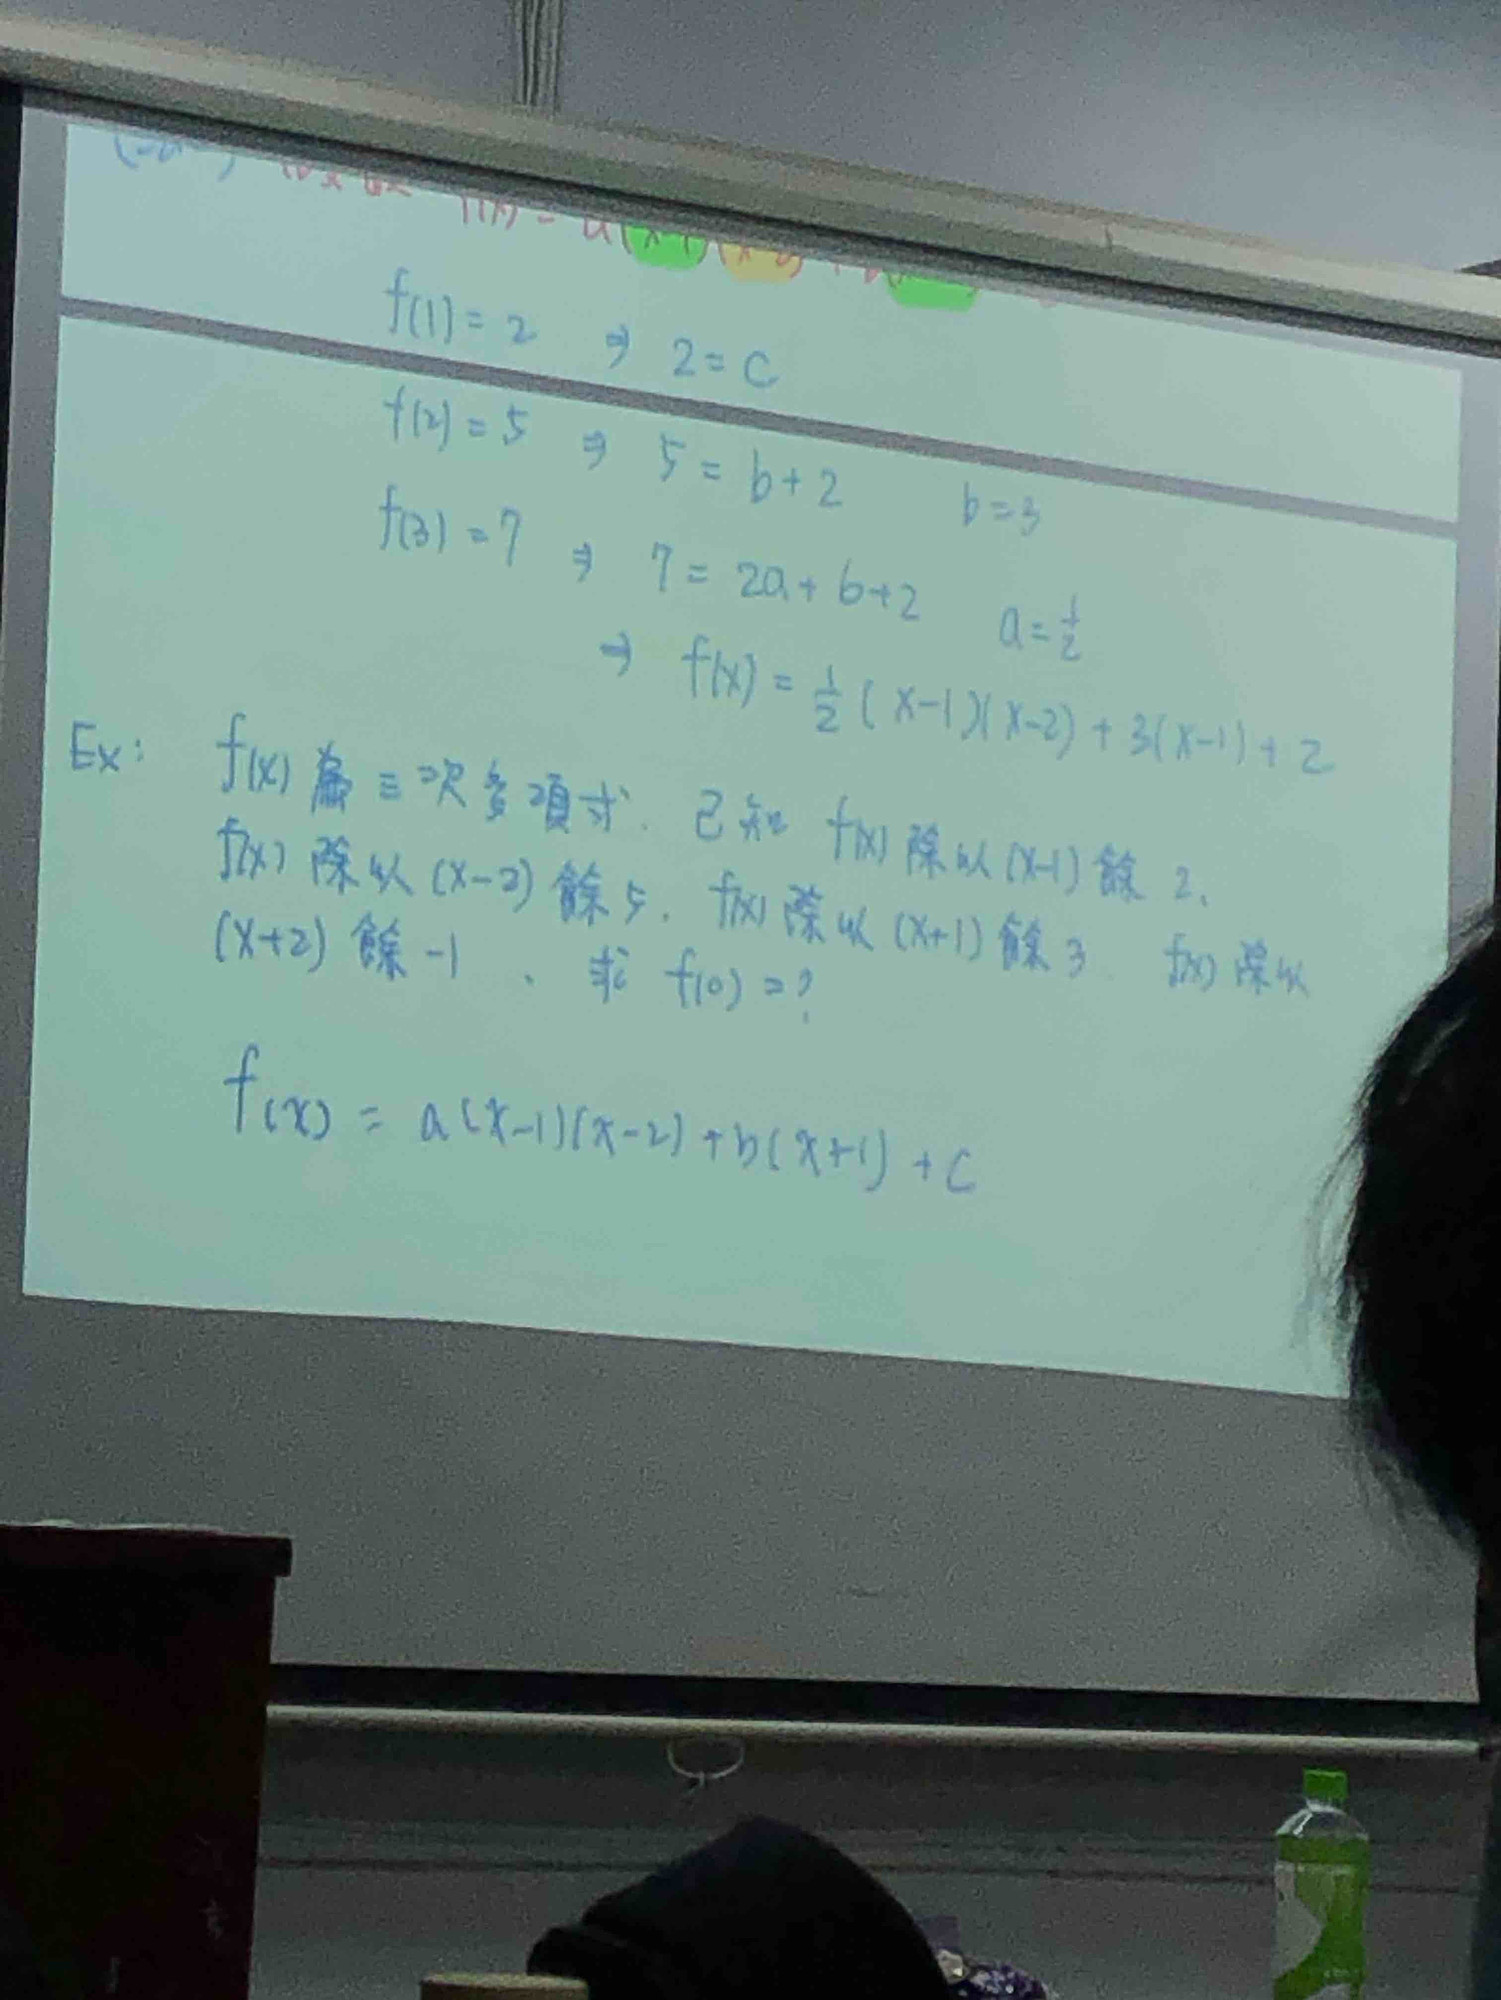 f(1) = 2 ⇒ 2 = C
f(2) = 5 ⇒ 5 = b + 2 b = 3
f(3) = 7 ⇒ 7 = 2a + b + 2 a = 1/2
⇒ f(x) = 1/2 (x-1)(x-2) + 3(x-1) + 2
Ex: f(x) 為三次多項式. 已知 f(x) 除以 (x-1) 餘 2.
f(x) 除以 (x-2) 餘 5. f(x) 除以 (x+1) 餘 3 f(x) 除以
(x+2) 餘 -1 、求 f(0) = ?
f(x) = a(x-1)(x-2) + b(x+1) + C